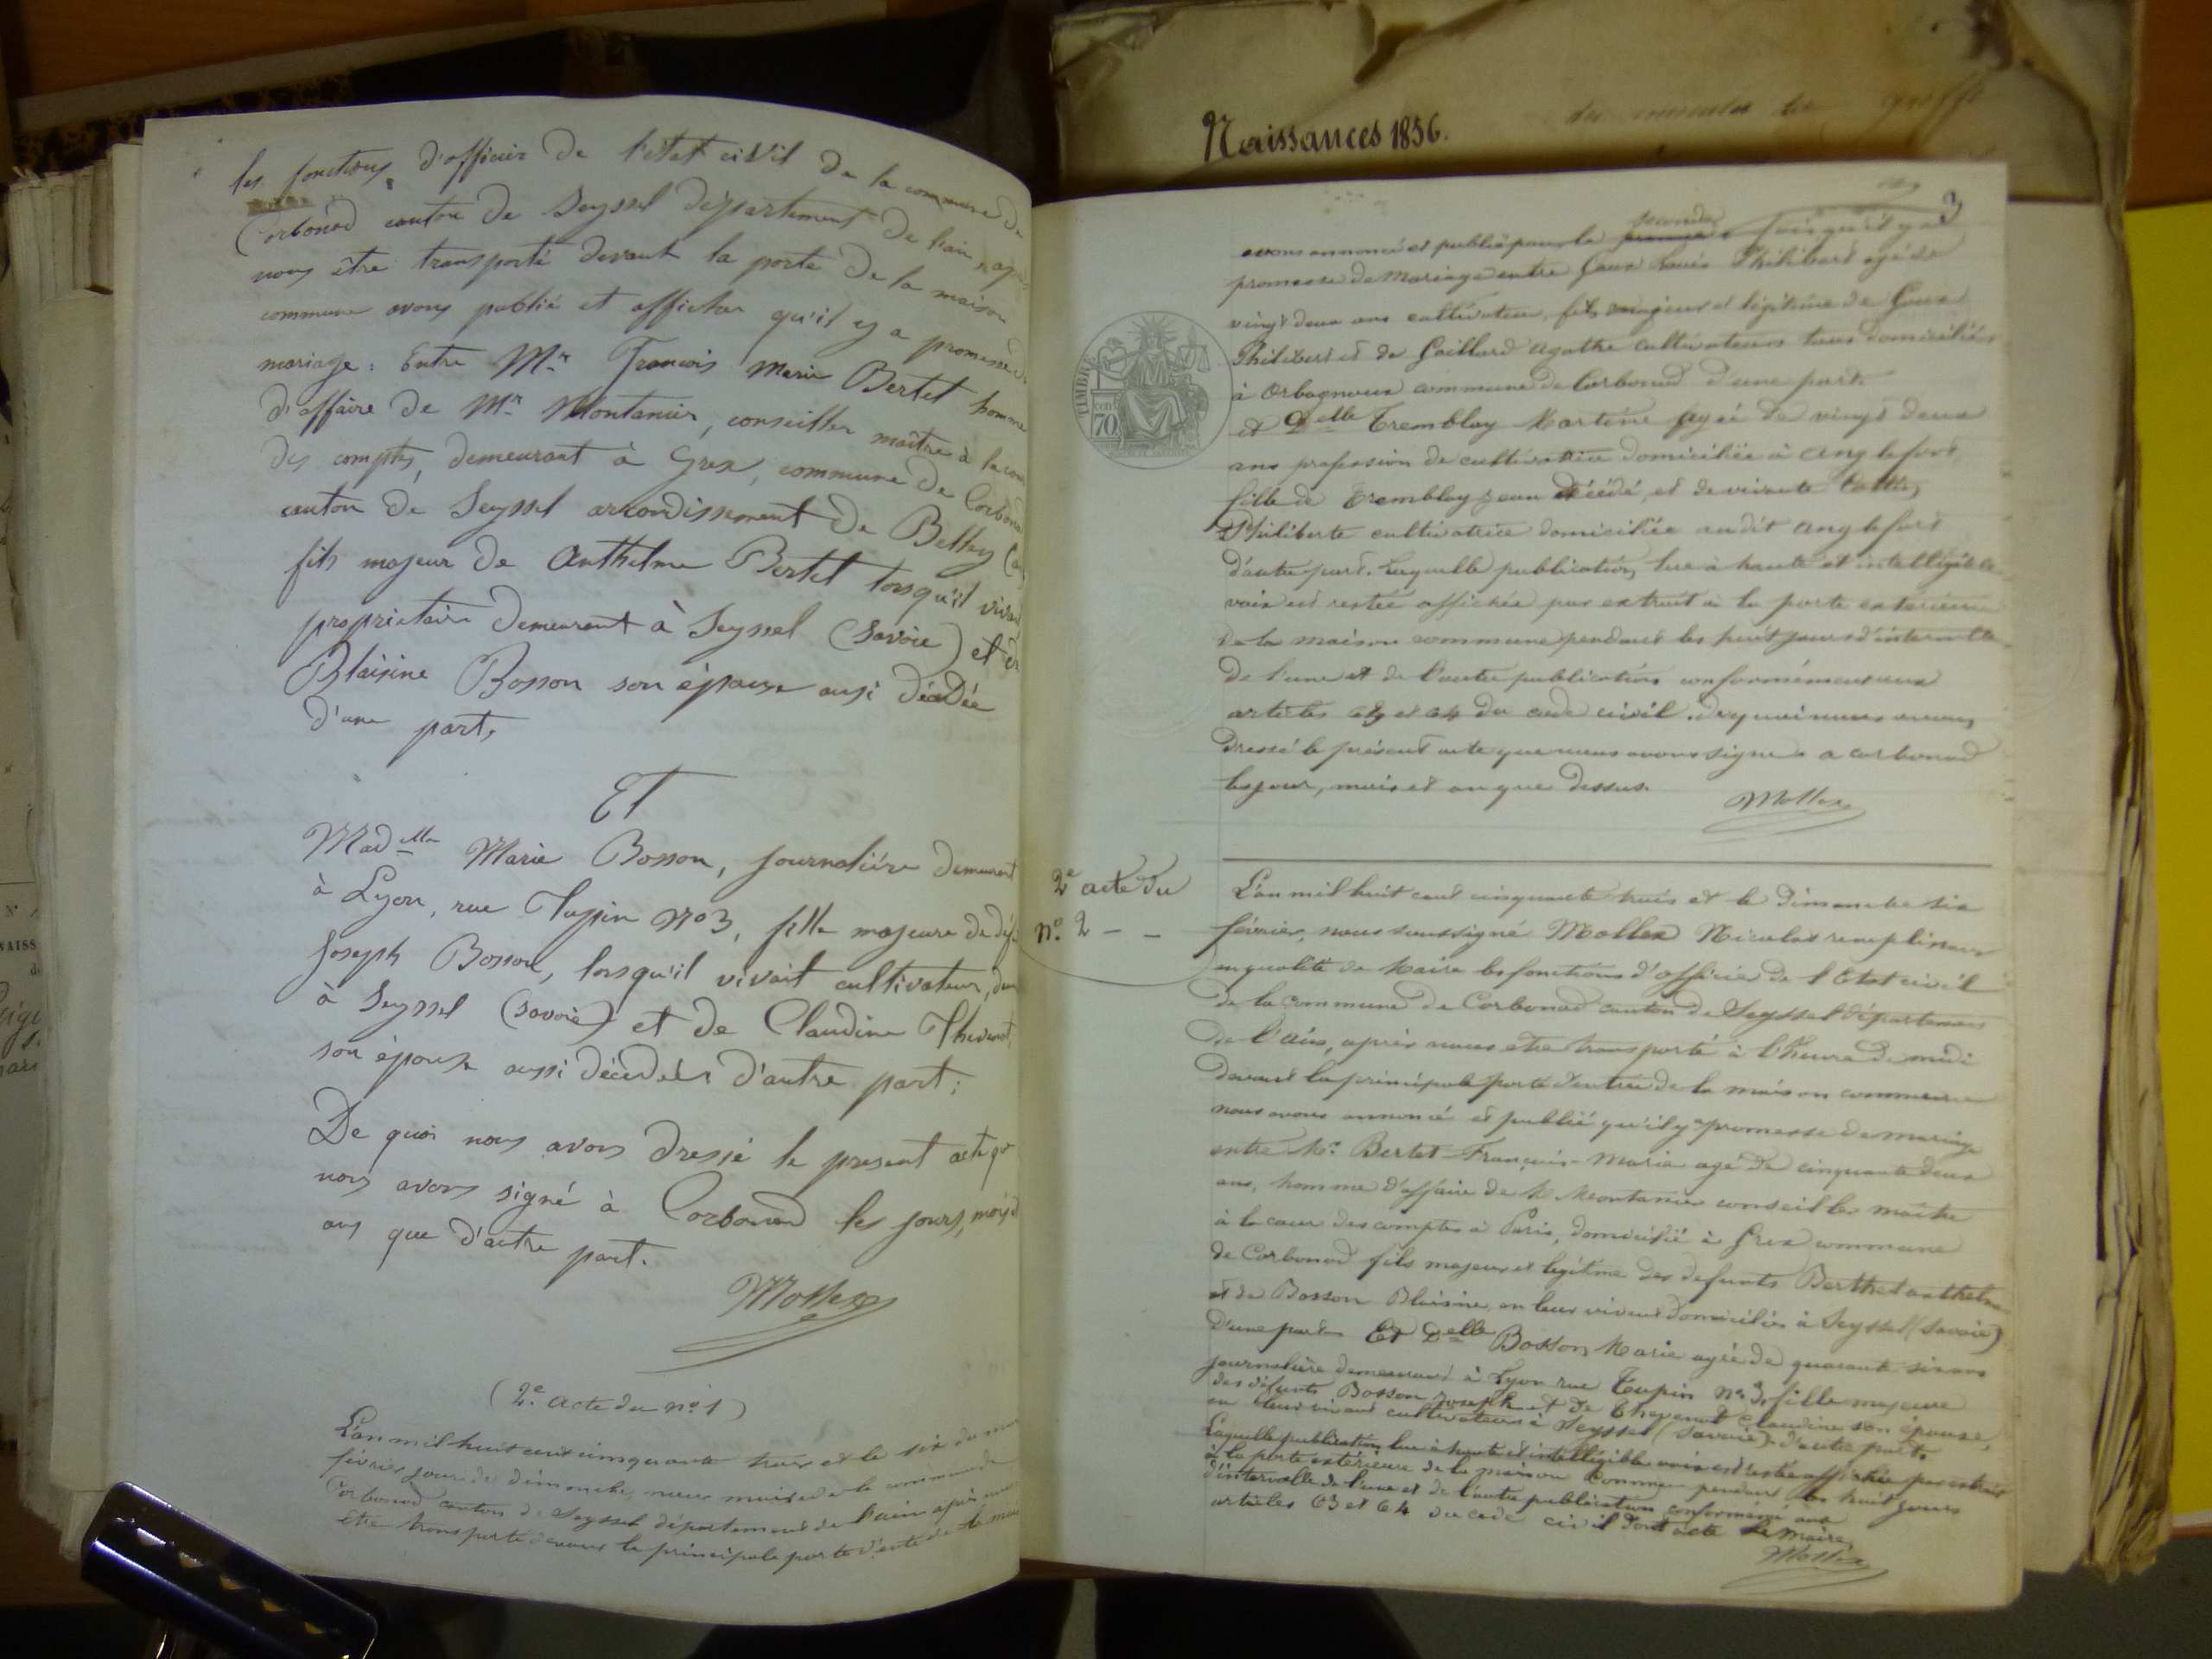 les fonctions d'officier de l'état civil de la commune de
Corbonod canton de Seyssel département de l'ain, après
nous être transporté devant la porte de la maison
commune avons publié et afficher qu'il y a promesse de
mariage : Entre Mr François Marie Bertet homme
d'affaire de Mr Montanier, conseiller maître à la cour
des comptes, demeurant à Grex, commune de Corbonod
canton de Seyssel arrondissement de Belley
fils majeur de Anthelme Bertet lorsqu'il vivait
propriétaire demeurant à Seyssel (Savoie) et de
Blaisine Bosson son épouse aussi décédée
d'une part,
Et
Madelle Marie Bosson, journaliére demeurant
à Lyon, rue Tupin No 3, fille majeure de
Joseph Bosson, lorsqu'il vivait cultivateur,
à Seyssel (Savoie) et de Claudine Thevenot
son épouse aussi décédées d'autre part ;
De quoi nous avons dressé le present acte que
nous avons signé à Corbonod les jours, mois
ans que d'autre part.
Mollex
(2e acte du no 1)
L'an mil huit cent cinquante trois et le six du mois
février jour de dimanche, nous maire de la commune de
Corbonod canton de Seyssel département de l'ain après nous
être transporté devant la principale porte d'entrée de la
Naissances 1856.
3
avons annoncé et publié pour la seconde fois qu'il y a
promesse de Mariage entre Louis Philibert agé de
vingt deux ans cultivateur, fils majeur et légitime de
Philibert et de Gaillard Agathe cultivateurs tous domiciliés
à Orbagnoux commune de Corbonod d'une part.
et Delle Tremblay Martine agée de vingt deux
ans profession de cultivatrice domiciliée à anglefort
fille de Tremblay jean décédé, et de vivante
Philiberte cultivatrice domiciliée audit anglefort
d'autre part. Laquelle publication, lue à haute et intelligible
voix est restée affichée par extrait à la porte extérieure
de la maison commune pendant les huit jours d'intervalle
de l'une et de l'autre publication conformément aux
articles 63 et 64 du code civil. de quoi nous avons
dressé le présent acte que nous avons signé a corbonod
les jour, mois et an que dessus.
Mollex
TIMBRE
70
2e acte du
no. 2 - -
L'an mil huit cent cinquante trois et le dimanche six
février, nous soussigné Mollex Nicolas remplissant
en qualité de Maire les fonctions d'officier de l'Etat civil
de la commune de Corbonod canton de Seyssel département
de l'ain, après nous être transporté à l'heure de midi
devant la principale porte d'entrée de la maison commune
nous avons annoncé et publié qu'il y a promesse de mariage
entre Mr. Bertet François-Marie agé de cinquante deux
ans, homme d'affaire de M Montanier conseiller maître
à la cour des comptes à Paris, domicilié à Grex commune
de Corbonod fils majeur et légitime des defunts Berthet anthelme
et de Bosson Blaisine en leur vivant domiciliés à Seyssel (Savoie)
d'une part Et Delle Bosson Marie agée de quarante six ans
journalière demeurant à Lyon rue Tupin no 3, fille majeure
des défunts Bosson Joseph et de Thevenot Claudine son épouse,
en leur vivant cultivateurs à Seyssel (Savoie) d'autre part.
Laquelle publication lue à haute et intelligible voix est restée affichée par extrait
à la porte extérieure de la maison Commune pendant les huit jours
d'intervalle de l'une et de l'autre publication conformémt aux
articles 63 et 64 du code civil dont acte Le Maire
Mollex